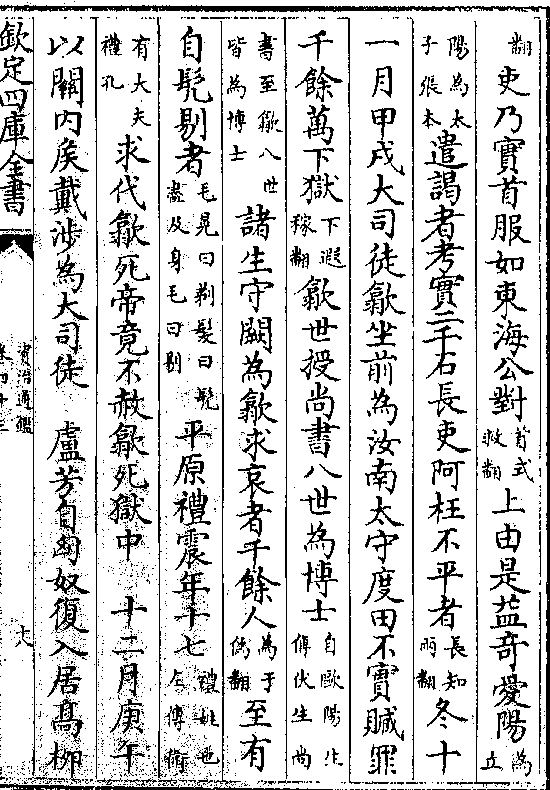 翻吏乃實首服如東海公對首式救翻上由是益奇愛陽為立
陽為太子張本遣謁者考實二千石長吏阿枉不平者長知兩翻冬十
一月甲戌大司徒歙坐前為汝南太守度田不實贓罪
千餘萬下獄下遐稼翻歙世授尚書八世為博士自歐陽生傳伏生尚
書至歙八世皆為博士諸生守闕為歙求哀者千餘人為于偽翻至有
自髠剔者毛晃曰剃髮曰髠盡及身毛曰剔平原禮震年十七禮姓也左傳衛
有大夫禮孔求代歙死帝竟不赦歙死獄中 十二月庚午
以關內侯戴涉為大司徒 盧芳自匈奴復入居高柳
欽定四庫全書 資治通鑑 卷四十三 十八